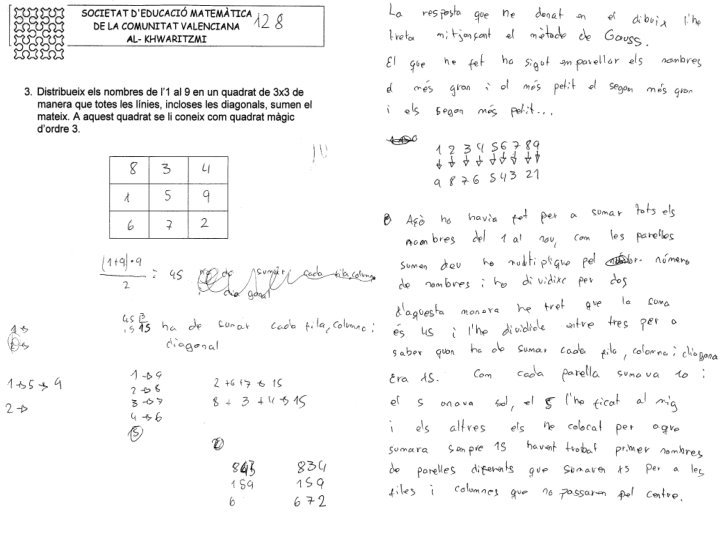 SOCIETAT D'EDUCACIÓ MATEMÀTICA
DE LA COMUNITAT VALENCIANA
AL- KHWARITZMI
128
3. Distribueix els nombres de l'1 al 9 en un quadrat de 3x3 de
manera que totes les línies, incloses les diagonals, sumen el
mateix. A aquest quadrat se li coneix com quadrat màgic
d'ordre 3.
8 3 4
1 5 9
6 7 2
(1+9)·9
2
= 45
45 | 3
15 15 ha de sumar cada fila, columna i
diagonal
1→5→9
2→
1→9
2→8
3→7
4→6
5
2+6+7→15
8+3+4→15
834
159
6
834
159
672
La resposta que he donat en el dibuix l'he
treta mitjançant el mètode de Gauss.
El que he fet ha sigut emparellar els nombres
el més gran i el més petit el segon més gran
i els segon més petit...
1 2 3 4 5 6 7 8 9
9 8 7 6 5 4 3 2 1
Açò ho havia fet per a sumar tots els
nombres del 1 al nou, com les parelles
sumen deu ho multiplique pel número
de nombres i ho dividixc per dos
d'aquesta manera he tret que la suma
és 45 i l'he dividida entre tres per a
saber quan ha de sumar cada fila, columna i diagonal
Era 15. Com cada parella sumava 10 i
el 5 anava sol, el 5 l'he ficat al mig
i els altres els he colocat per a que
sumara sempre 15 havent trobat primer nombres
de parelles diferents que sumaren 15 per a les
files i columnes que no passaren pel centre.